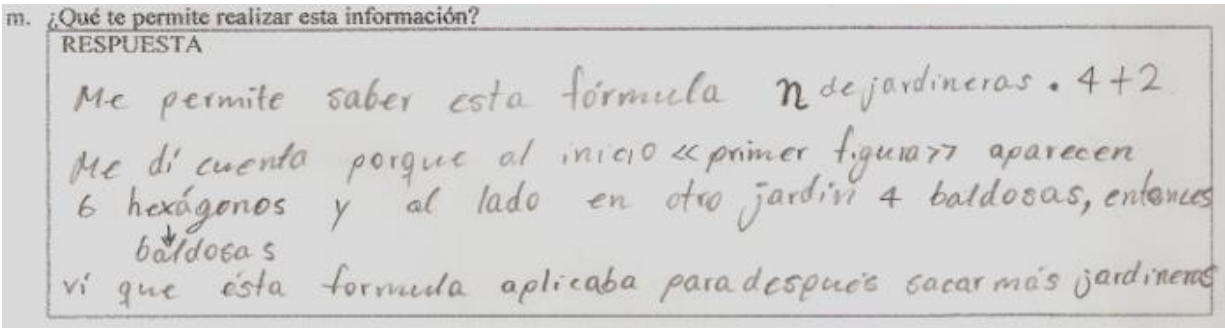 m. ¿Qué te permite realizar esta información?
RESPUESTA
Me permite saber esta fórmula n de jardineras . 4+2
Me dí cuenta porque al inicio «primer figura» aparecen
6 hexágonos y al lado en otro jardín 4 baldosas, entonces
baldosas
ví que ésta formula aplicaba para después sacar más jardineras